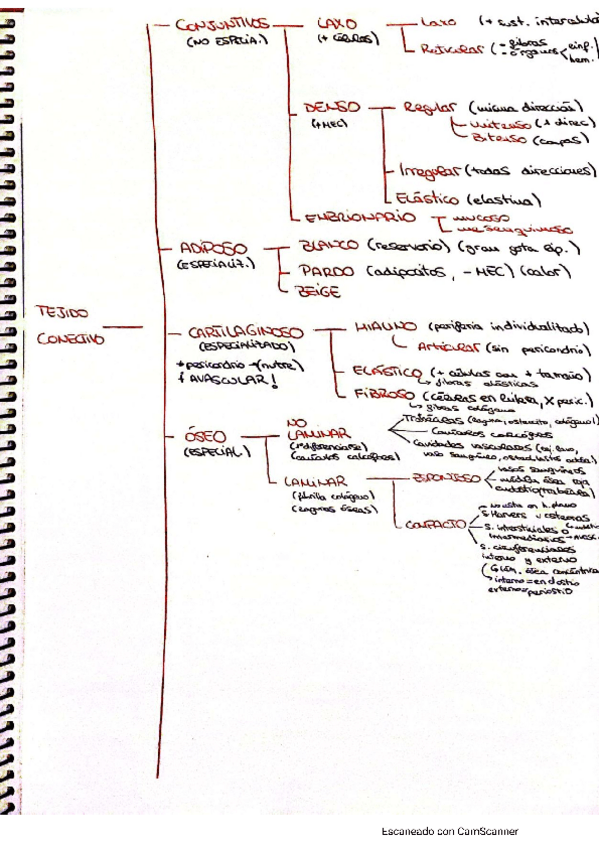 CONJUNTIVOS
(NO ESPECIA.)
LAXO
(+ CÉLULAS)
Laxo (+ sust. intercelula
Reticular (= fibras
= órganos
linf.
hem.
DENSO
(+MEC)
Regular (misma dirección)
Unitenso (1 direc)
Bitenso (capas)
Irregular (todas direcciones)
Elástico (elastina)
EMBRIONARIO
mucoso
mesenquimoso
ADIPOSO
(ESPECIALIZ.)
BLANCO (reservorio) (gran gota lip.)
PARDO (adipocitos, - MEC) (calor)
BEIGE
TEJIDO
CONECTIVO
CARTILAGINOSO
(ESPECIALITZADO)
+ pericondrio → (nutre)
AVASCULAR!
HIALINO (periferia individualitzado)
Articular (sin pericondrio)
ELÁSTICO (+ células con + tamaño)
↳ fibras elásticas
FIBROSO (células en hilera, X peric.)
↳ fibras colágeno
ÓSEO
(ESPECIAL)
NO
LAMINAR
Trabéculas (laguna, osteocito, colágeno I)
Canalículos calcóforos
Cavidades vasculares
vaso sanguíneo,
LAMINAR
(fibrilla colágeno)
ESPONJOSO
vasos sanguíneos
médula ósea roja
endostio (trabécula)
COMPACTO
S. Havers
S. intersticiales o
intermediarios
S. circunferenciales
interno y externo
interno = endostio
externo = periostio
Escaneado con CamScanner